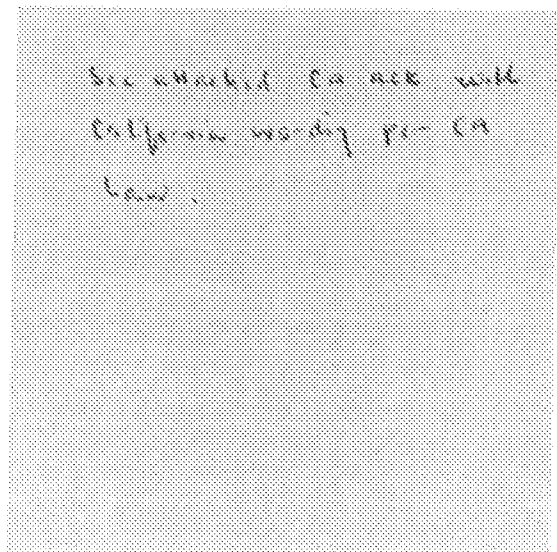 See attached CA ACK with
California wording per CA
Law.